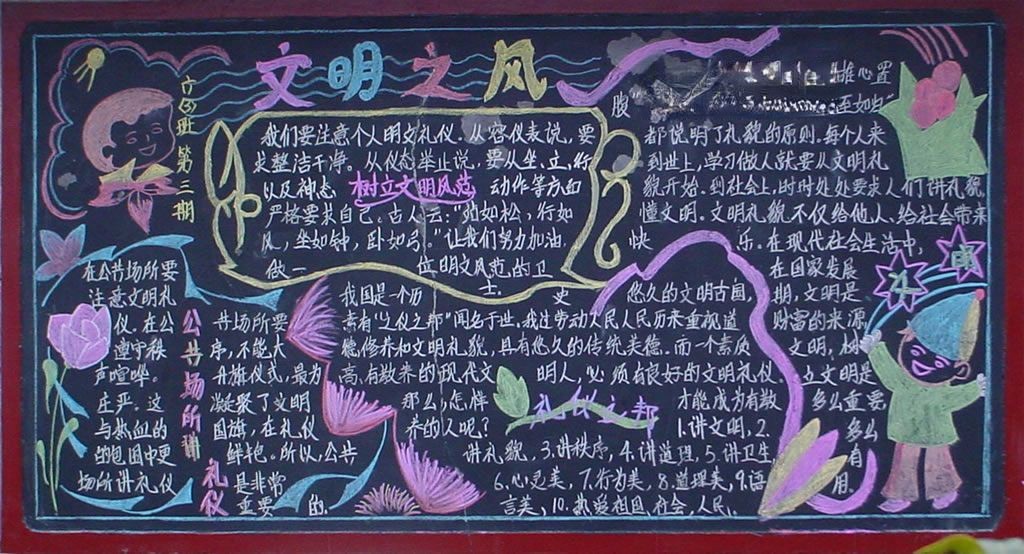 文明之风
六(3)班 第三期
我们要注意个人明文礼仪。从容仪表说，要
求整洁干净。从仪态举止说，要从坐、立、行
以及神态，动作等方面
树立文明风范
严格要求自己。古人云："站如松，行如
风，坐如钟，卧如弓。"让我们努力加油，
做一位明文风范的卫
士。
在公共场所要
注意文明礼
仪。在公共场所要
遵守秩序，不能大
声喧哗。升旗仪式，最为
庄严。这凝聚了文明
与热血的国旗，在礼仪
的包围中更鲜艳。所以，公共
场所讲礼仪是非常
重要的。
公共场所讲礼仪
我国是一个历史悠久的文明古国，
素有"之仪之邦"闻名于世，我过劳动人民人民历来重视道
德修养和文明礼貌，具有悠久的传统美德。而一个素质
高，有教养的现代文明人，必须有良好的文明礼仪。
那么，怎样才能成为有教
养的人呢？1.讲文明，2.
讲礼貌，3.讲秩序，4.讲道理，5.讲卫生
6.心灵美，7.行为美，8.道理美，9.语
言美，10.热爱祖国，社会，人民。
礼仪之邦
推心置
腹
至如归"
都说明了礼貌的原则。每个人来
到世上，学习做人就要从文明礼
貌开始。到社会上，时时处处要求人们讲礼貌
懂文明。文明礼貌不仅给他人、给社会带来
快乐。在现代社会生活中，
在国家发展
期，文明是
财富的来源
文明，树
立文明是
多么重要
多么
有
用。